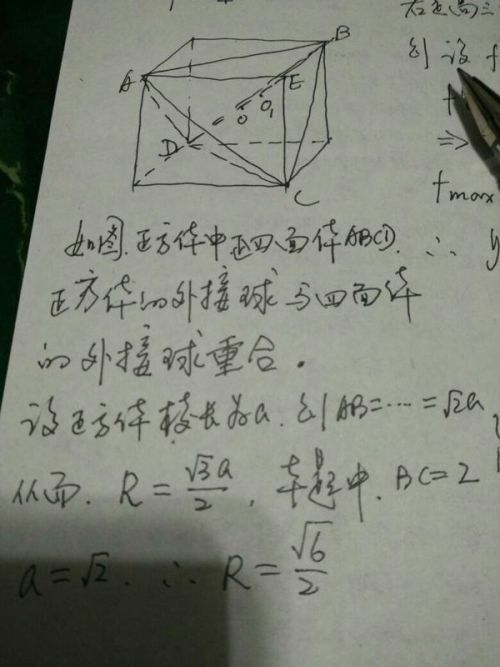 右边高三
则设f
A
B
E
D
O
O₁
C
t
⇒
tmax
如图.正方体中正四面体ABCD.∴ y
正方体的外接球与四面体
的外接球重合。
设正方体棱长为a.则AB=⋯=√2a,
从而.R=√3a/2,本题中.BC=2
a=√2.∴R=√6/2